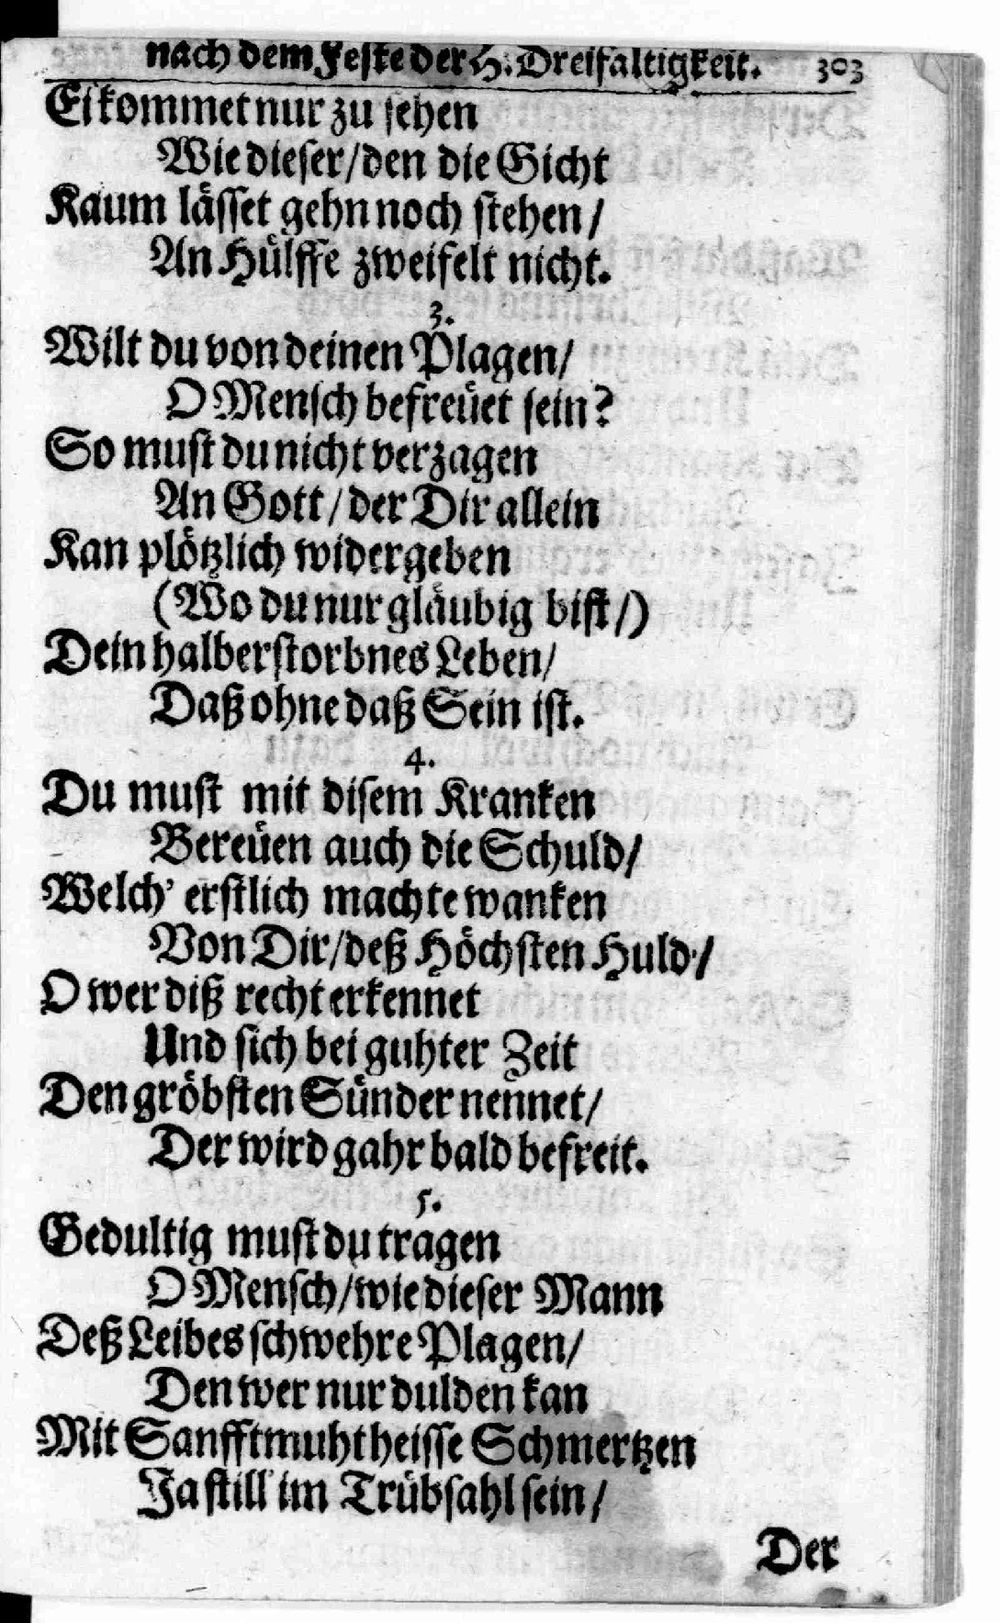 nach dem Feste der H. Dreifaltigkeit. 303
Ei kommet nur zu sehen
Wie dieser/den die Gicht
Kaum lässet gehn noch stehen/
An Hülffe zweifelt nicht.
3.
Wilt du von deinen Plagen/
O Mensch befreüet sein?
So must du nicht verzagen
An Gott/der Dir allein
Kan plötzlich widergeben
(Wo du nur gläubig bist/)
Dein halberstorbnes Leben/
Daß ohne daß Sein ist.
4.
Du must mit disem Kranken
Bereüen auch die Schuld/
Welch' erstlich machte wanken
Von Dir/deß Höchsten Huld/
O wer diß recht erkennet
Und sich bei guhter Zeit
Den gröbsten Sünder nennet/
Der wird gahr bald befreit.
5.
Gedultig must du tragen
O Mensch/wie dieser Mann
Deß Leibes schwehre Plagen/
Den wer nur dulden kan
Mit Sanfftmuht heisse Schmertzen
Ja still im Trübsahl sein/
Der